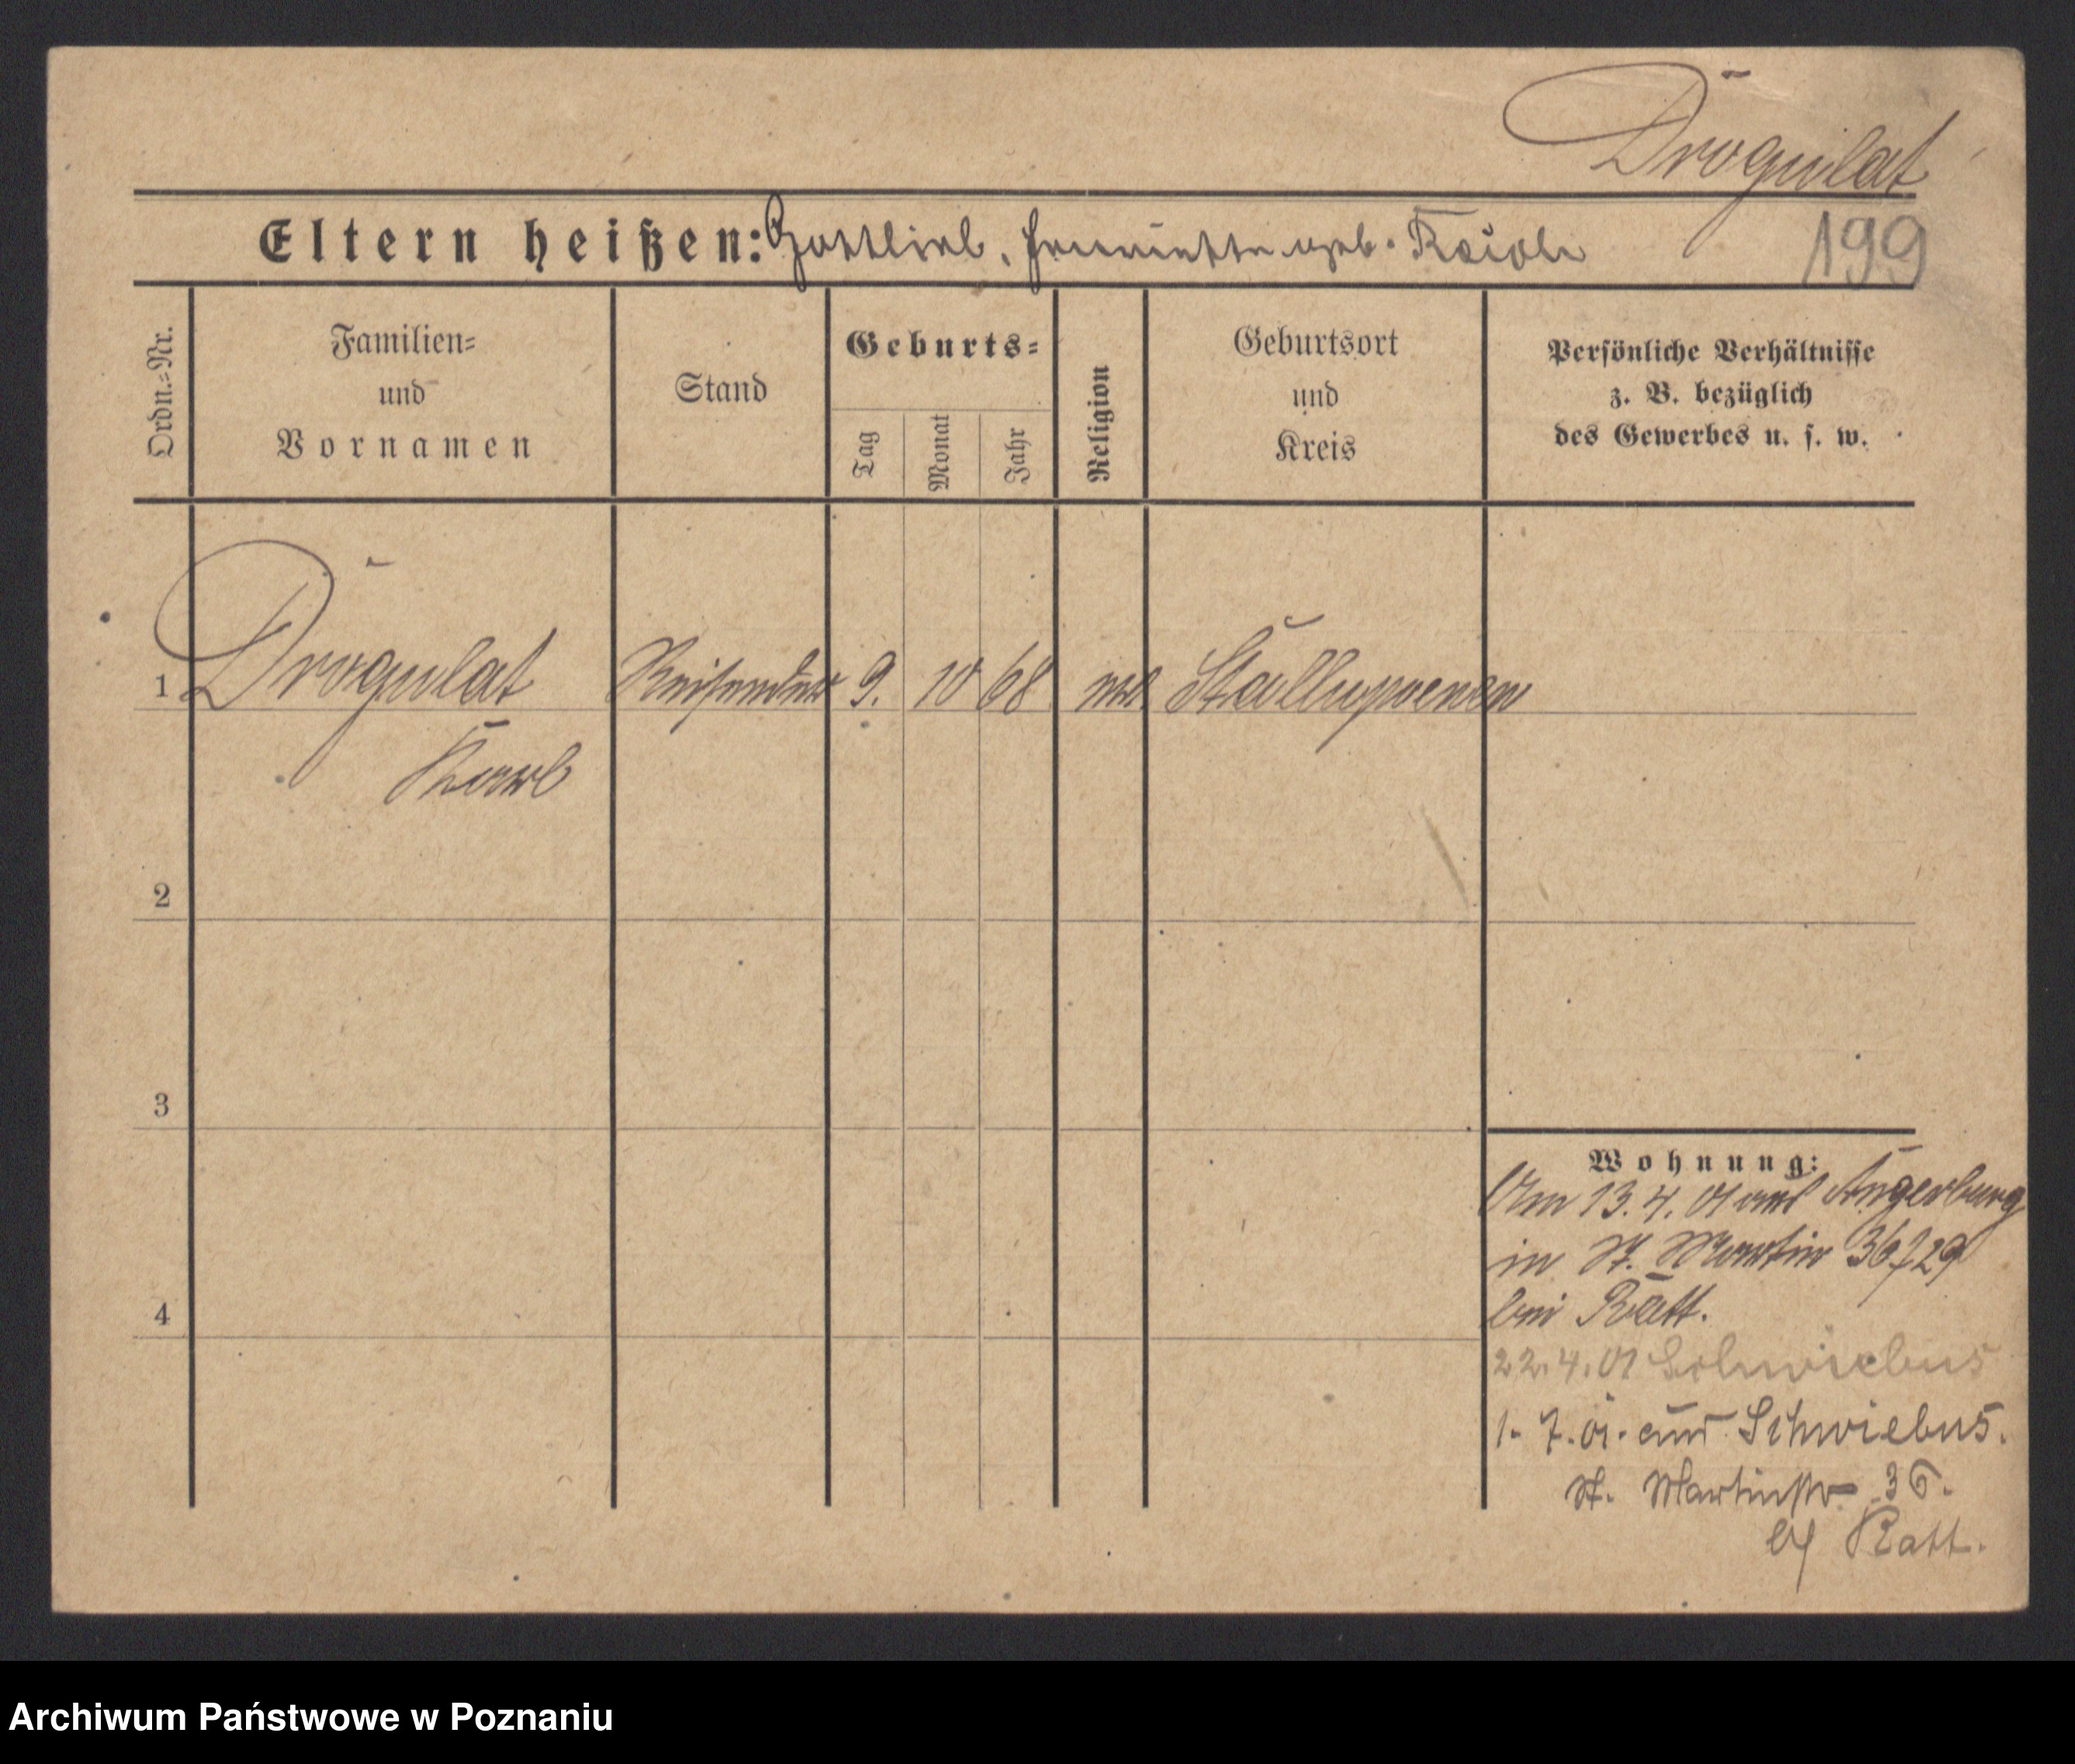 Drogulat
Eltern heißen: Gottlieb, Henriette geb. Reich
199
Ordn.=Nr.
Familien=
und
Vornamen
Stand
Geburts=
Tag
Monat
Jahr
Religion
Geburtsort
und
Kreis
Persönliche Verhältnisse
z. B. bezüglich
des Gewerbes u. s. w.
1 Drogulat Reisender 9. 10 68 Stallupoenen
Karl
2
3
4
Wohnung:
Am 13.4.01 aus Angerburg
in St. Martin 36
bei Ratt.
22.4.01 Schwiebus
1.7.01. aus Schwiebus.
St. Martinstr 36.
Ratt.
Archiwum Państwowe w Poznaniu